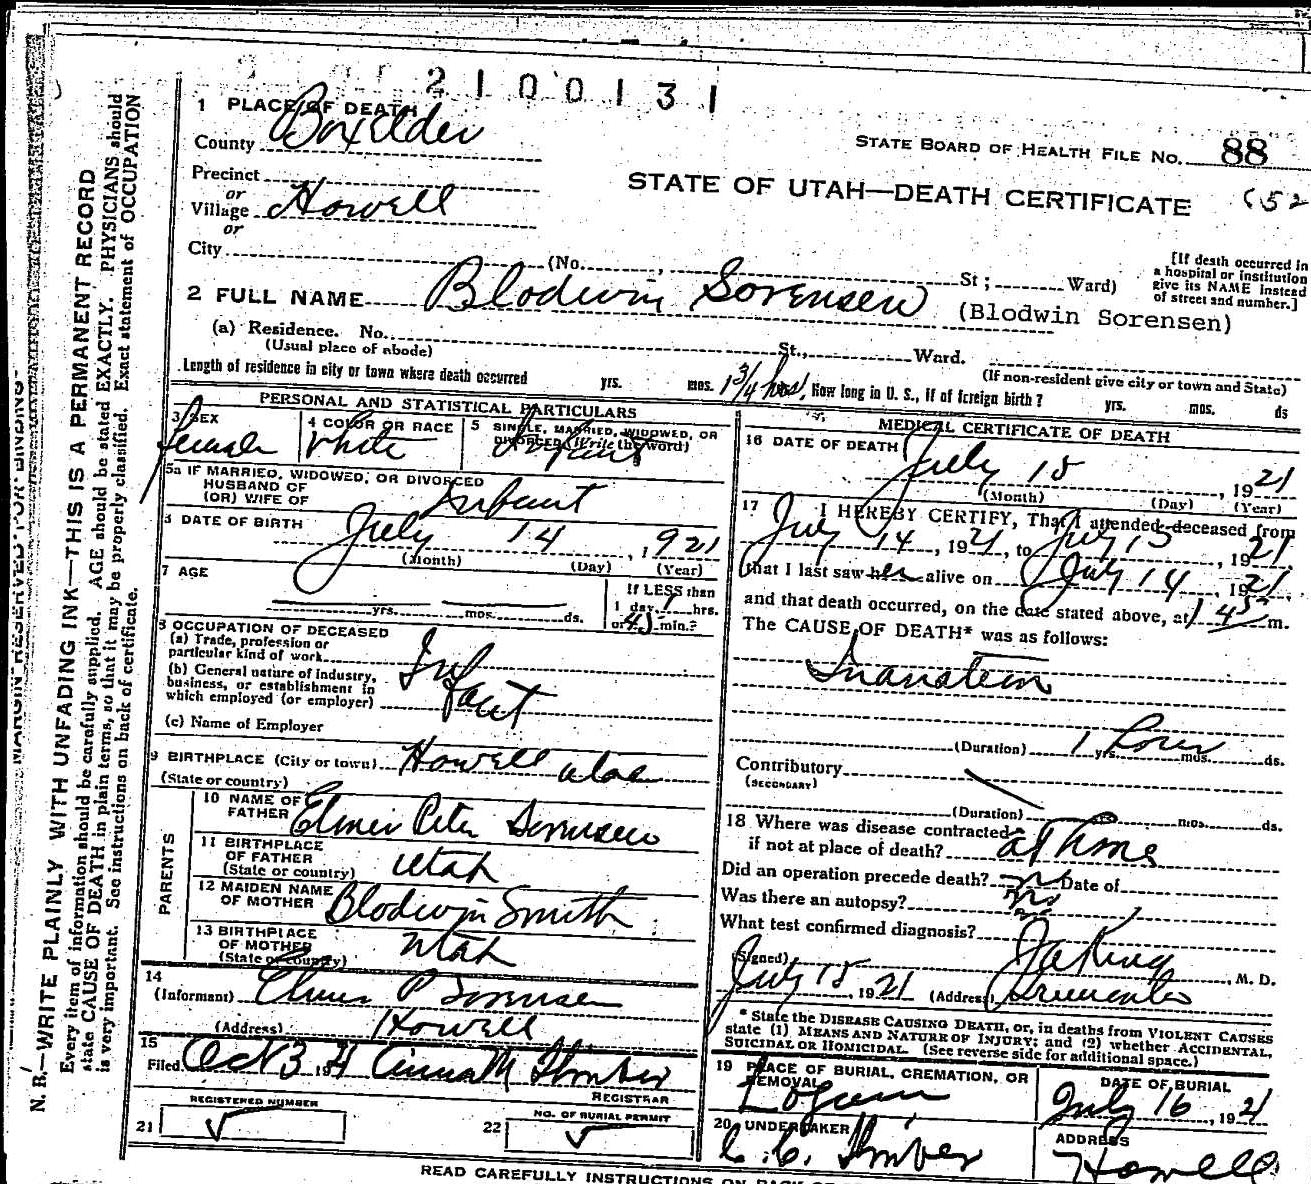 2100131
1 PLACE OF DEATH
County Boxelder
STATE BOARD OF HEALTH FILE No. 88
Precinct
or
Village Howell
or
STATE OF UTAH—DEATH CERTIFICATE
(52
City (No. , St; Ward)
[If death occurred in
a hospital or institution
give its NAME instead
of street and number.]
2 FULL NAME Blodwin Sorensen (Blodwin Sorensen)
(a) Residence. No. St., Ward.
(Usual place of abode)
(If non-resident give city or town and State)
Length of residence in city or town where death occurred yrs. mos. 1 3/4 hrs. How long in U. S., if of foreign birth? yrs. mos. ds
PERSONAL AND STATISTICAL PARTICULARS
3 SEX
female
4 COLOR OR RACE
White
5 SINGLE, MARRIED, WIDOWED, OR
DIVORCED (Write the word)
Infant
5a IF MARRIED, WIDOWED, OR DIVORCED
HUSBAND OF
(OR) WIFE OF
Infant
6 DATE OF BIRTH
July 14, 1921
(Month) (Day) (Year)
7 AGE
yrs. mos. ds.
If LESS than
1 day, 1 hrs.
or 45 min.?
8 OCCUPATION OF DECEASED
(a) Trade, profession or
particular kind of work
(b) General nature of industry,
business, or establishment in
which employed (or employer)
Infant
(c) Name of Employer
9 BIRTHPLACE (City or town) Howell Utah
(State or country)
PARENTS
10 NAME OF
FATHER Elmer Peter Sorensen
11 BIRTHPLACE
OF FATHER
(State or country) Utah
12 MAIDEN NAME
OF MOTHER Blodwin Smith
13 BIRTHPLACE
OF MOTHER
(State or country) Utah
14
(Informant) Elmer P Sorensen
(Address) Howell
15
Filed Oct 3, 1921
REGISTRAR
REGISTERED NUMBER
21
NO. OF BURIAL PERMIT
22
MEDICAL CERTIFICATE OF DEATH
16 DATE OF DEATH
July 15, 1921
(Month) (Day) (Year)
17 I HEREBY CERTIFY, That I attended deceased from
July 14, 1921, to July 15, 1921
that I last saw her alive on July 14, 1921
and that death occurred, on the date stated above, at 1 45 m.
The CAUSE OF DEATH* was as follows:
(Duration) 1 hour yrs. mos. ds.
Contributory
(SECONDARY)
(Duration) yrs. mos. ds.
18 Where was disease contracted
if not at place of death? at home
Did an operation precede death? no Date of
Was there an autopsy? no
What test confirmed diagnosis?
(Signed) M. D.
July 15, 1921 (Address)
* State the DISEASE CAUSING DEATH, or, in deaths from VIOLENT CAUSES
state (1) MEANS AND NATURE OF INJURY; and (2) whether ACCIDENTAL,
SUICIDAL OR HOMICIDAL. (See reverse side for additional space.)
19 PLACE OF BURIAL, CREMATION, OR
REMOVAL
Logan
DATE OF BURIAL
July 16, 1921
20 UNDERTAKER
ADDRESS
Howell
READ CAREFULLY INSTRUCTIONS ON BACK OF
MARGIN RESERVED FOR BINDING
N. B.—WRITE PLAINLY WITH UNFADING INK—THIS IS A PERMANENT RECORD
Every item of information should be carefully supplied. AGE should be stated EXACTLY. PHYSICIANS should
state CAUSE OF DEATH in plain terms, so that it may be properly classified. Exact statement of OCCUPATION
is very important. See instructions on back of certificate.